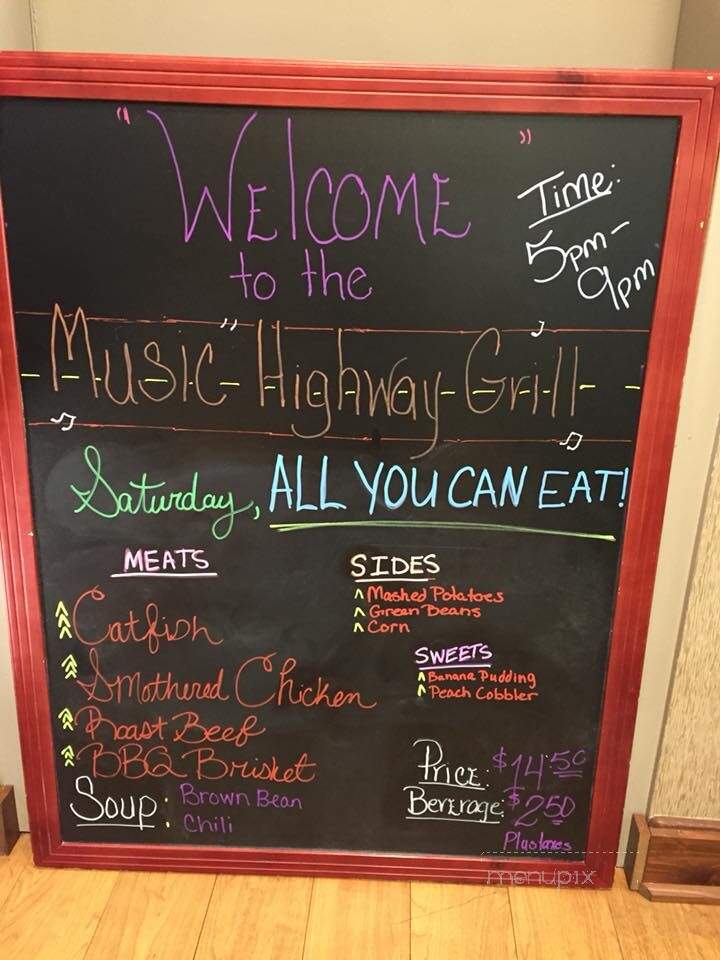 "WELCOME"
to the
Time:
5pm-
9pm
Music Highway Grill
Saturday, ALL YOU CAN EAT!
MEATS
Catfish
Smothered Chicken
Roast Beef
BBQ Brisket
Soup: Brown Bean
Chili
SIDES
^ Mashed Potatoes
^ Green Beans
^ Corn
SWEETS
^ Banana Pudding
^ Peach Cobbler
Price: $14.50
Beverage: $2.50
Plus taxes
menupix